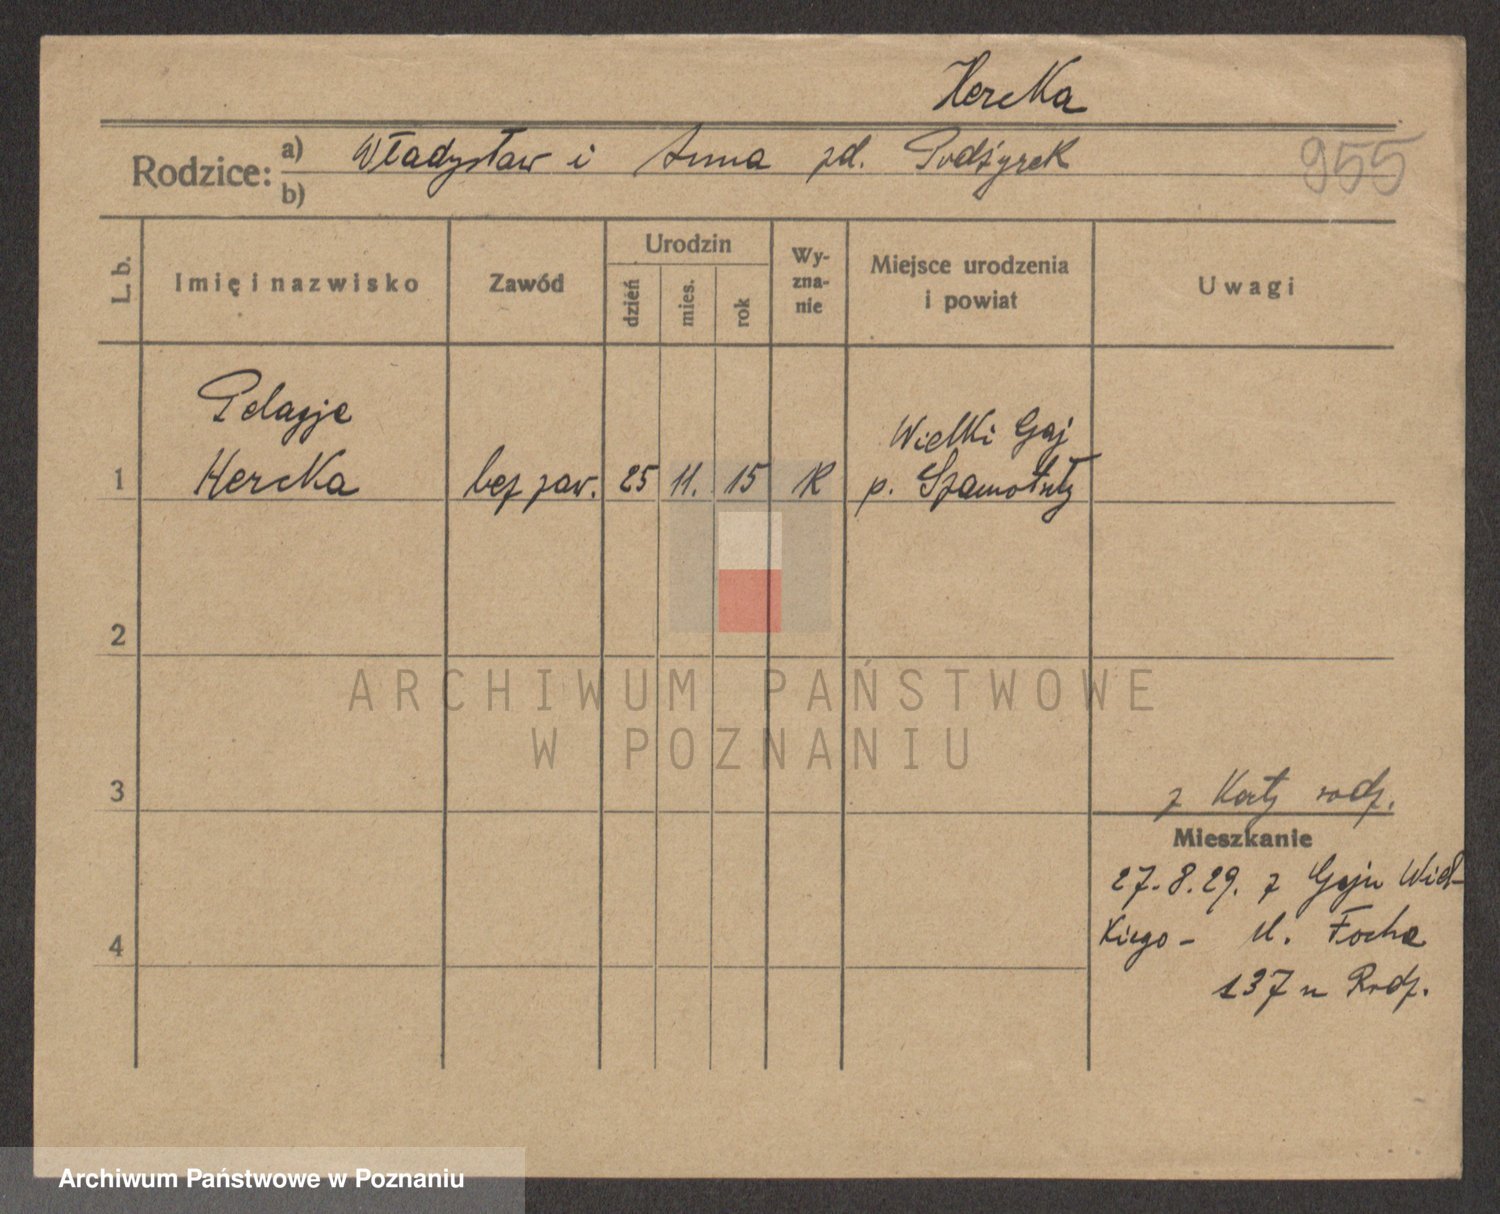 Hercka
Rodzice: a) Władysław i Anna zd. Podżyrek
b)
955
L. b.
Imię i nazwisko
Zawód
Urodzin
dzień
mies.
rok
Wy-
zna-
nie
Miejsce urodzenia
i powiat
Uwagi
Pelagje
Wielki Gaj
1 Hercka bez zaw. 25 11. 15 R p. Szamotuły
2
3
z Karty rodz.
Mieszkanie
27.8.29. z Gaju Wiel-
kiego - ul. Focha
4
137 u Rodz.
ARCHIWUM PAŃSTWOWE
W POZNANIU
Archiwum Państwowe w Poznaniu